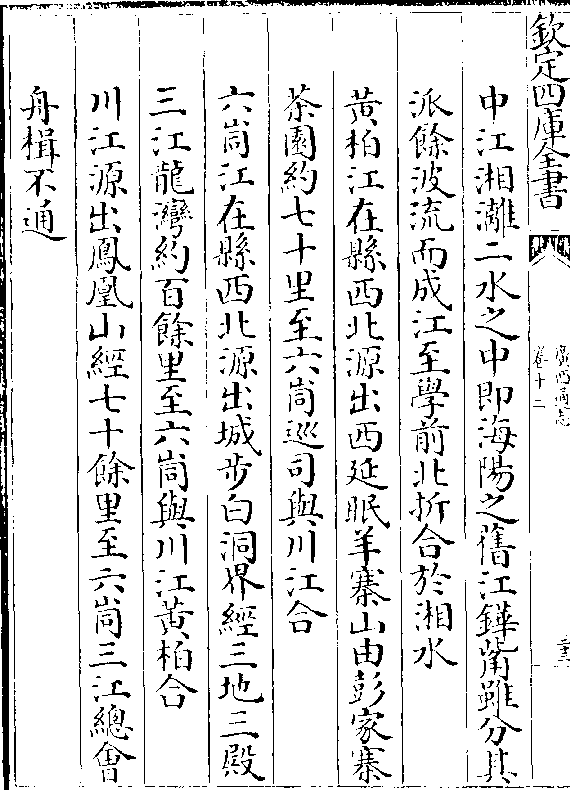 欽定四庫全書
廣西通志
卷十二
三三
中江湘灕二水之中即海陽之舊江鏵觜雖分其
派餘波流而成江至學前北折合於湘水
黃柏江在縣西北源出西延眠羊寨山由彭家寨
茶園約七十里至六峝巡司與川江合
六峝江在縣西北源出城步白洞界經三地三殿
三江龍灣約百餘里至六峝與川江黃柏合
川江源出鳳凰山經七十餘里至六峝三江總會
舟楫不通